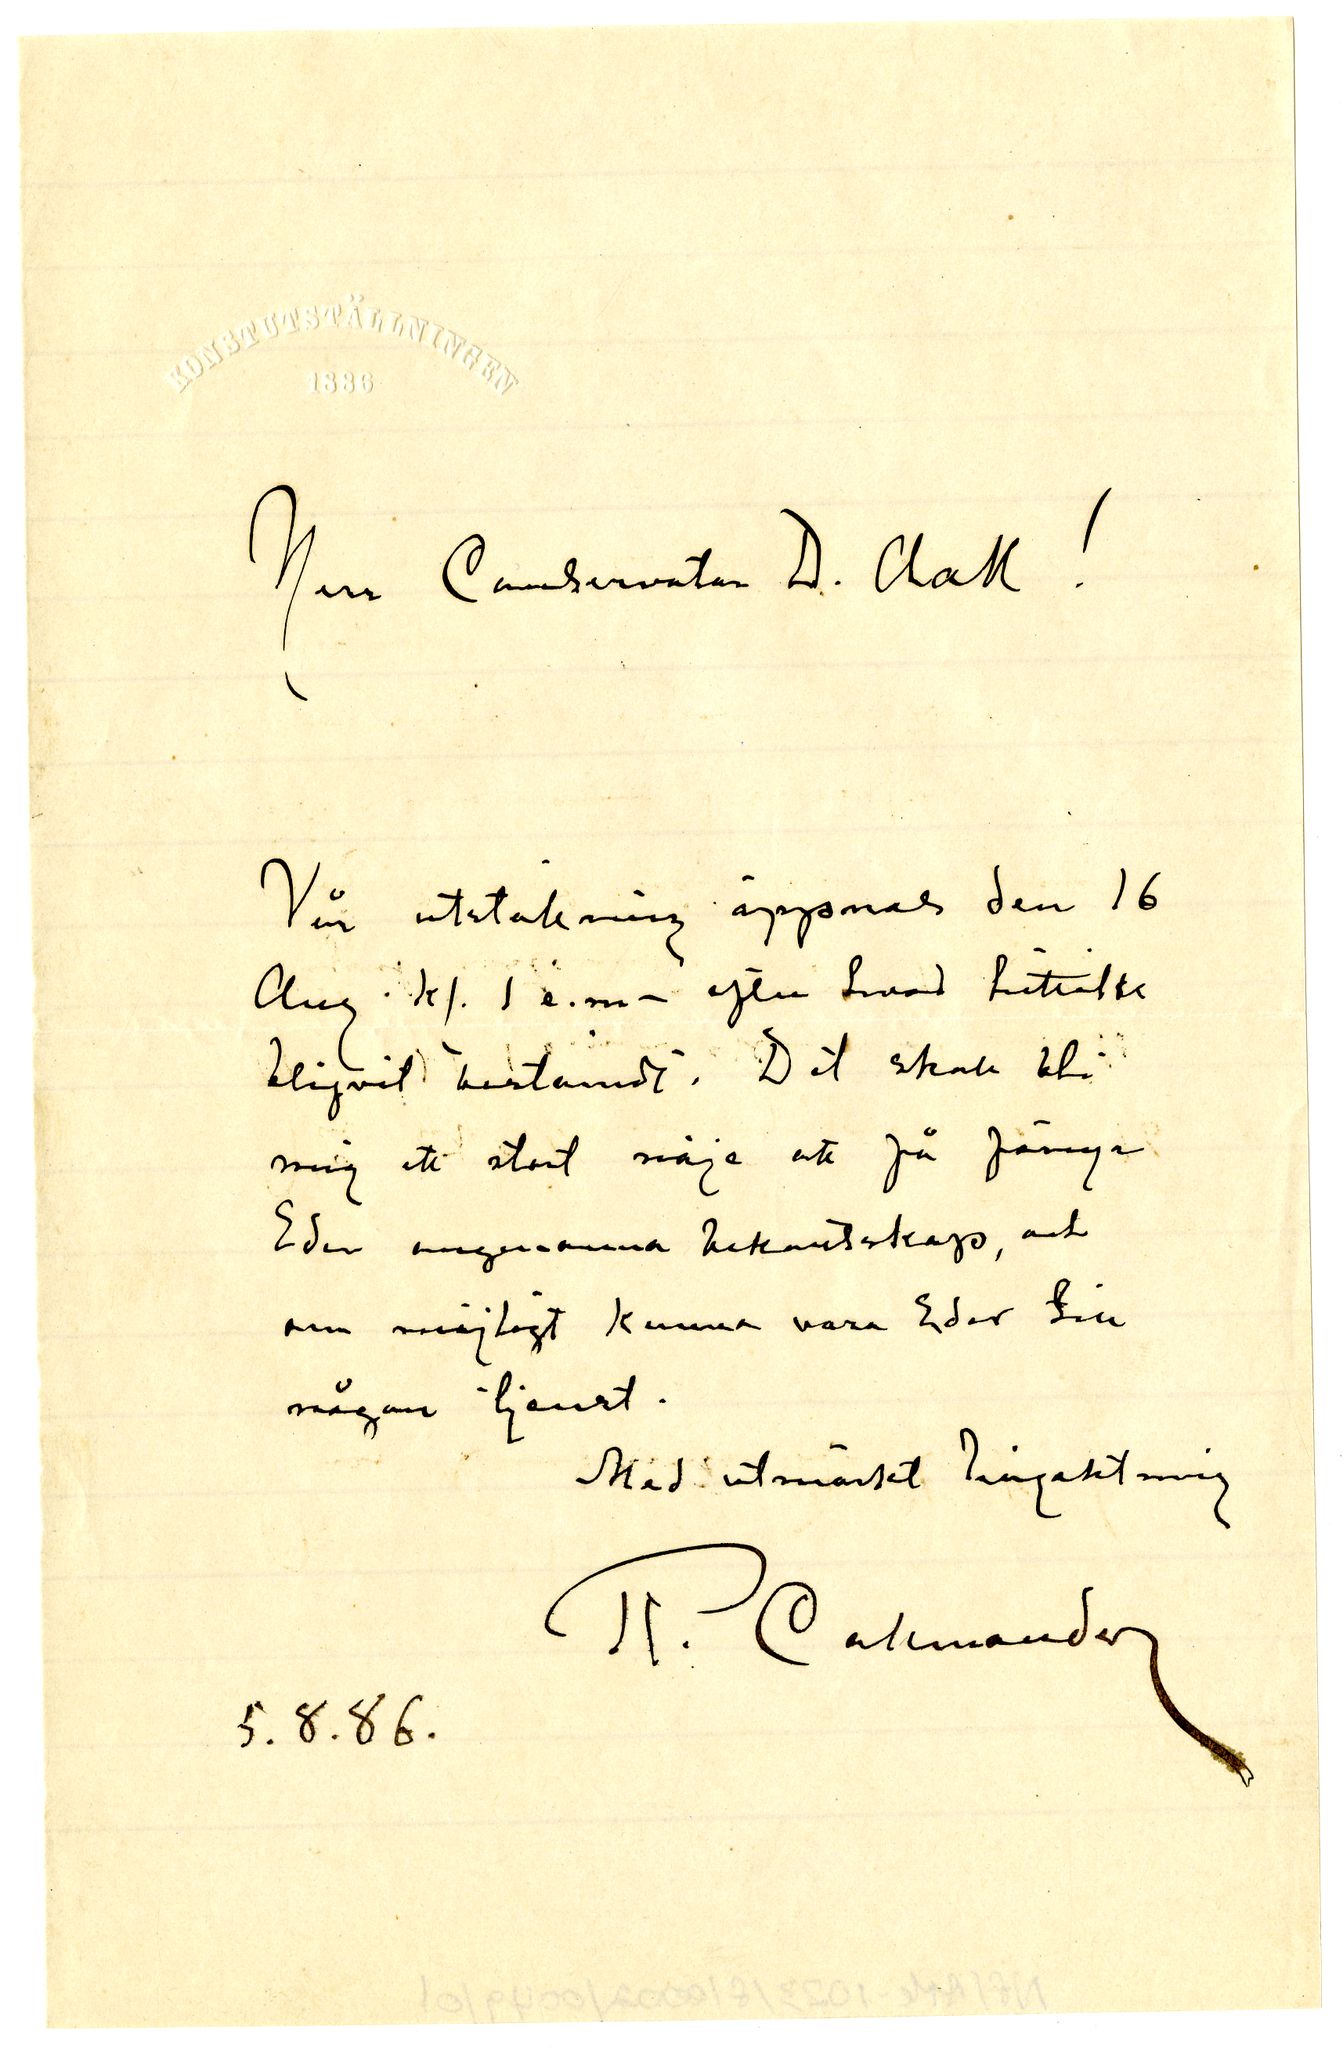 KONSTUTSTÄLLNINGEN
1886
Herr Conservator D. Aall!
Vår utställning öppnas den 16
Aug. kl. 1 e.m. efter hvad hittills
blifvit bestämdt. Det skall bli
mig ett stort nöje att få förnya
Eder angenäma bekantskap, och
om möjligt kunna vara Eder till
någon tjenst.
Med utmärkt högaktning
R. Callmander
5.8.86.